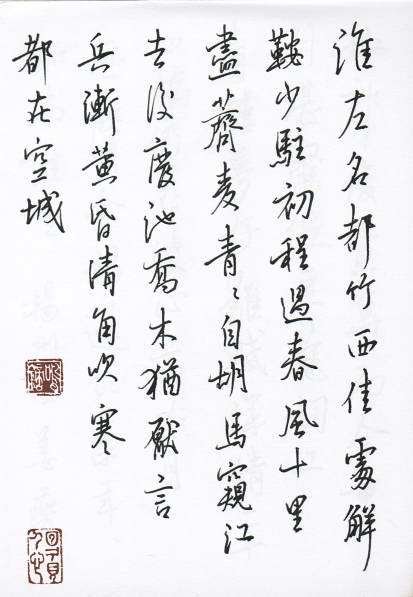 淮左名都竹西佳處解
鞍少駐初程過春風十里
盡薺麦青〻自胡馬窺江
去後廢池喬木猶厭言
兵漸黄昏清角吹寒
都在空城